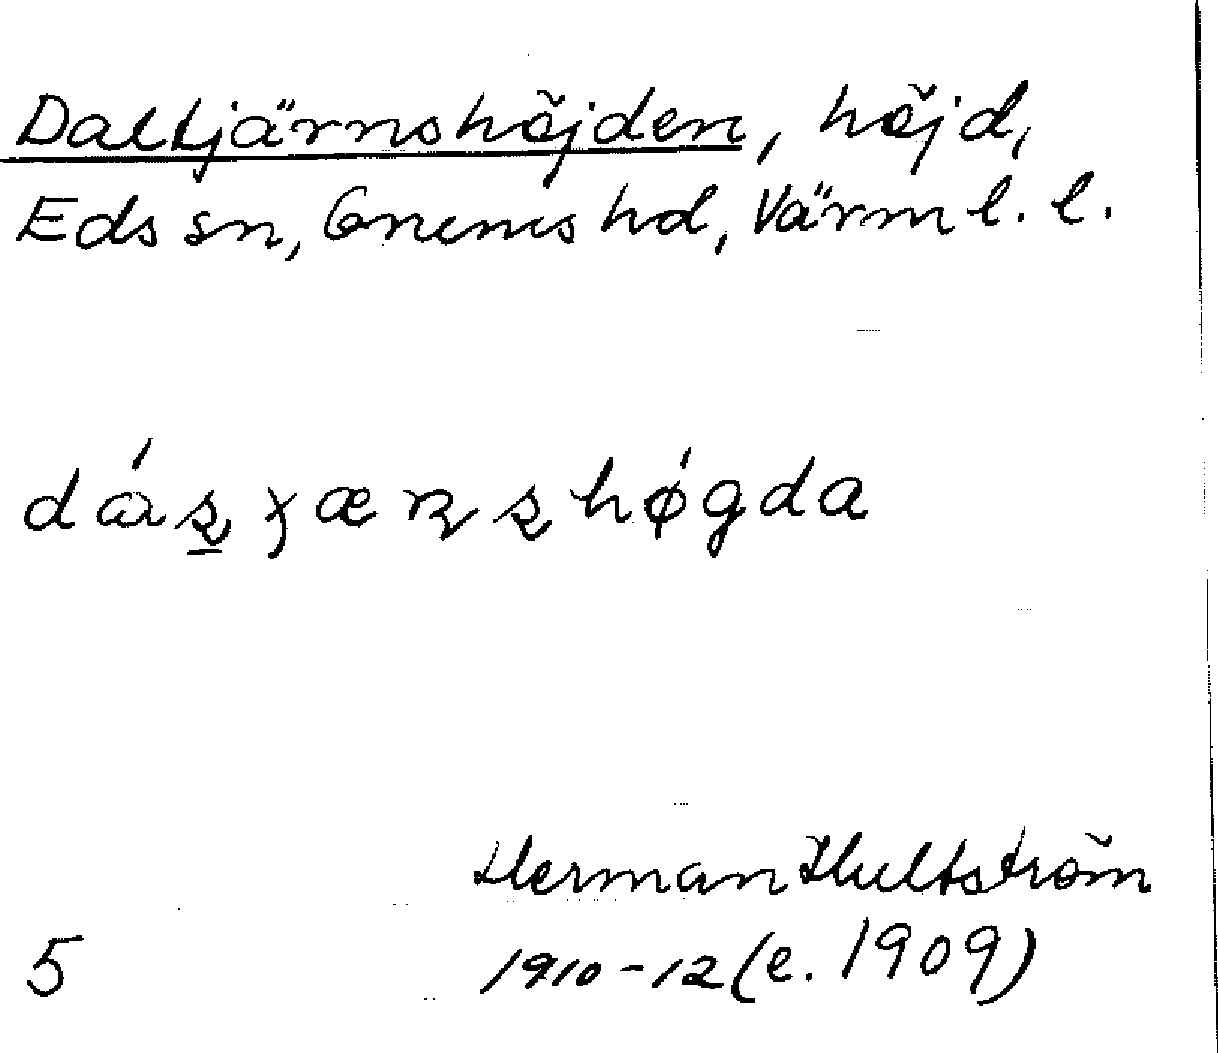 Daltjärnshöjden, höjd,
Eds sn, Grums hd, Värml. l.
Herman Hultström
5 1910-12 (e. 1909)